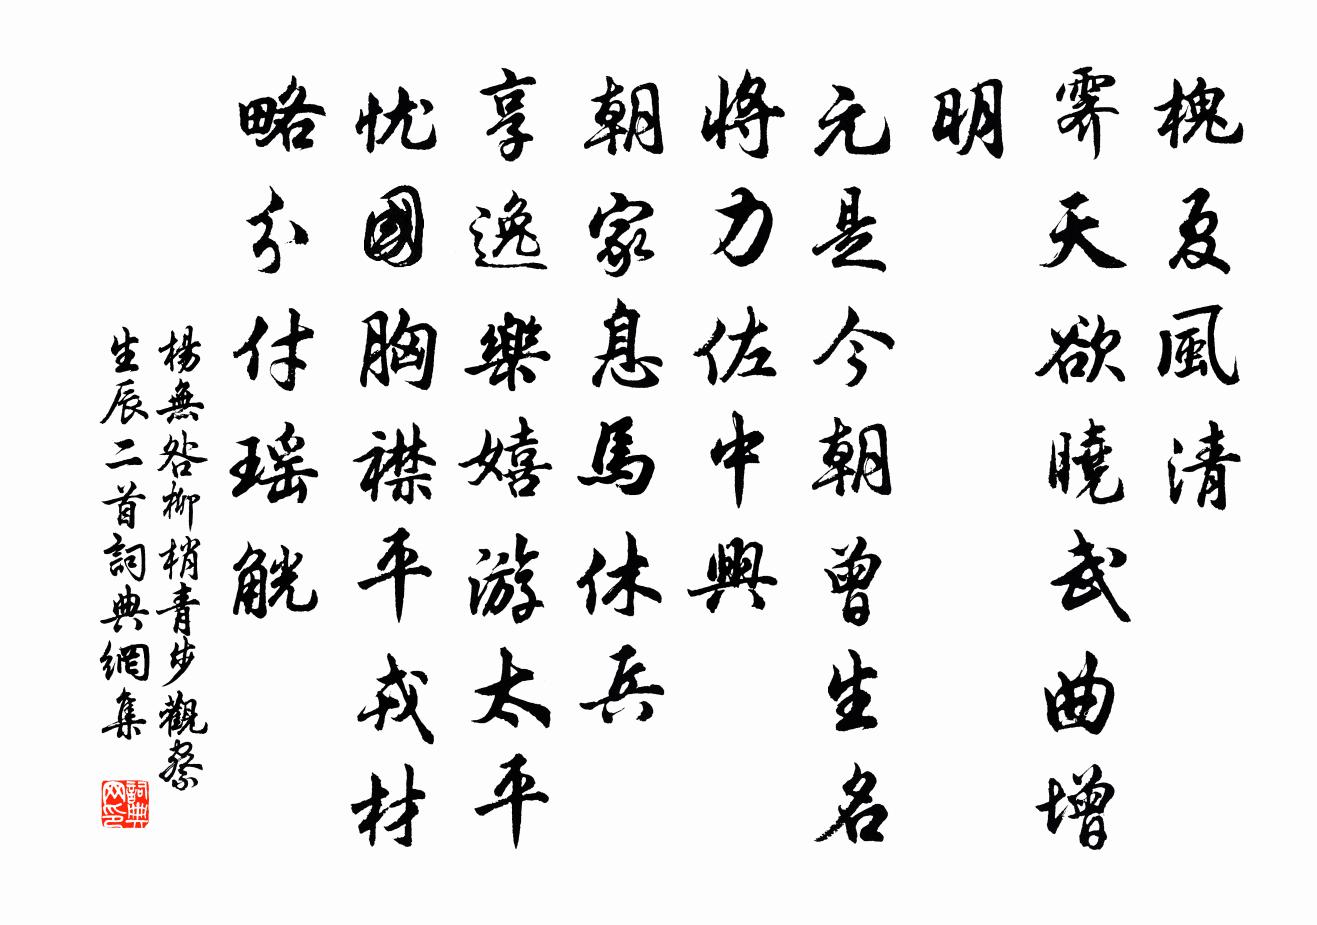 槐夏風清
霽天欲曉武曲增
明
元是今朝曾生名
將力佐中興
朝家息馬休兵
享逸樂嬉游太平
忧國胸襟平戎材
略分付瑶觥
楊無咎柳梢青步觀察
生辰二首詞典網集
詞典
网印